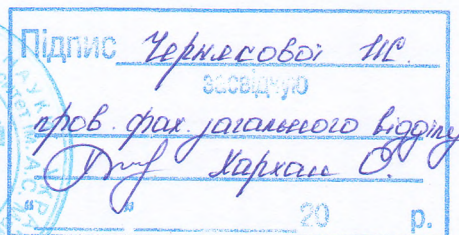 Підпис Чернясової Ж.
засвідчую
пров. фах. загального відділу
Каркац О.
“ ” 20 р.